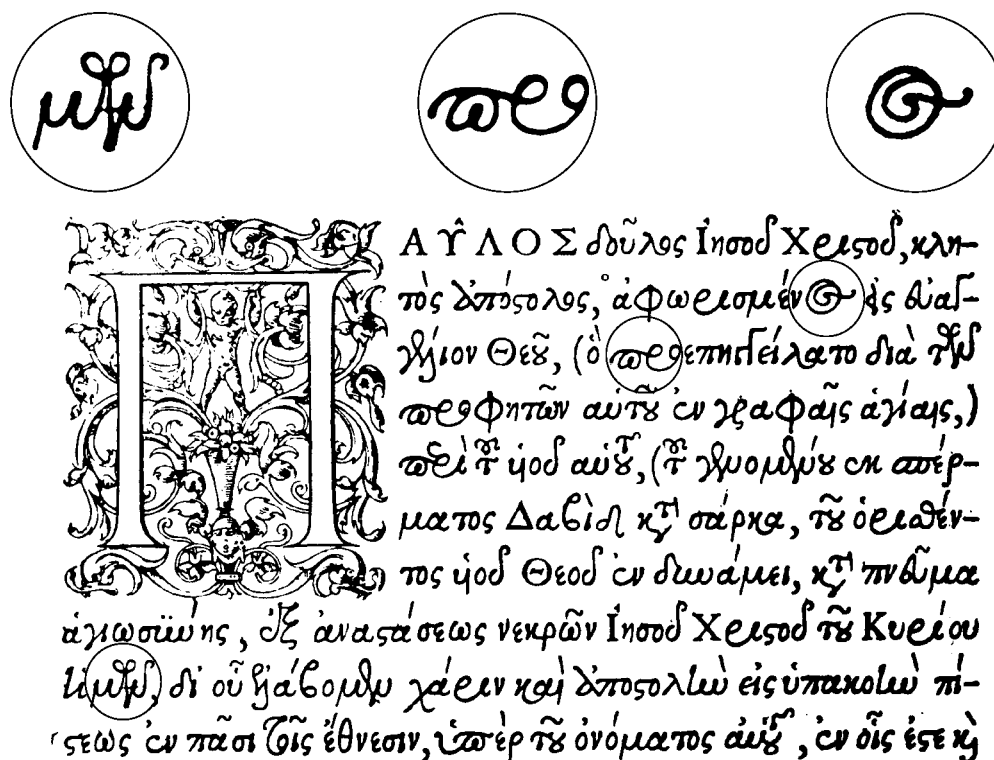 μῶν προ ος
ΠΑΥ͂ΛΟΣ δοῦλος Ἰησοῦ Χριστοῦ, κλη-
τὸς ἀπόστολος, ἀφωρισμένος εἰς εὐαγ-
γέλιον Θεοῦ, (ὃ προεπηγγείλατο διὰ τῶν
προφητῶν αὑτοῦ ἐν γραφαῖς ἁγίαις,)
περὶ τοῦ υἱοῦ αὑτοῦ, (τοῦ γενομένου ἐκ σπέρ-
ματος Δαβὶδ κατὰ σάρκα, τοῦ ὁρισθέν-
τος υἱοῦ Θεοῦ ἐν δυνάμει, κατὰ πνεῦμα
ἁγιωσύνης, ἐξ ἀναστάσεως νεκρῶν Ἰησοῦ Χριστοῦ τοῦ Κυρίου
ἡμῶν, δι' οὗ ἐλάβομεν χάριν καὶ ἀποστολὴν εἰς ὑπακοὴν πί-
στεως ἐν πᾶσι τοῖς ἔθνεσιν, ὑπὲρ τοῦ ὀνόματος αὑτοῦ, ἐν οἷς ἐστε καὶ